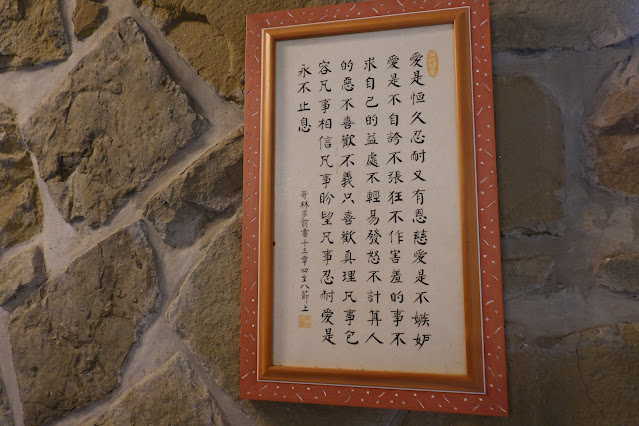 愛是恒久忍耐又有恩慈愛是不嫉妒
愛是不自誇不張狂不作害羞的事不
求自己的益處不輕易發怒不計算人
的惡不喜歡不義只喜歡真理凡事包
容凡事相信凡事盼望凡事忍耐愛是
永不止息
哥林多前書十三章四至八節上